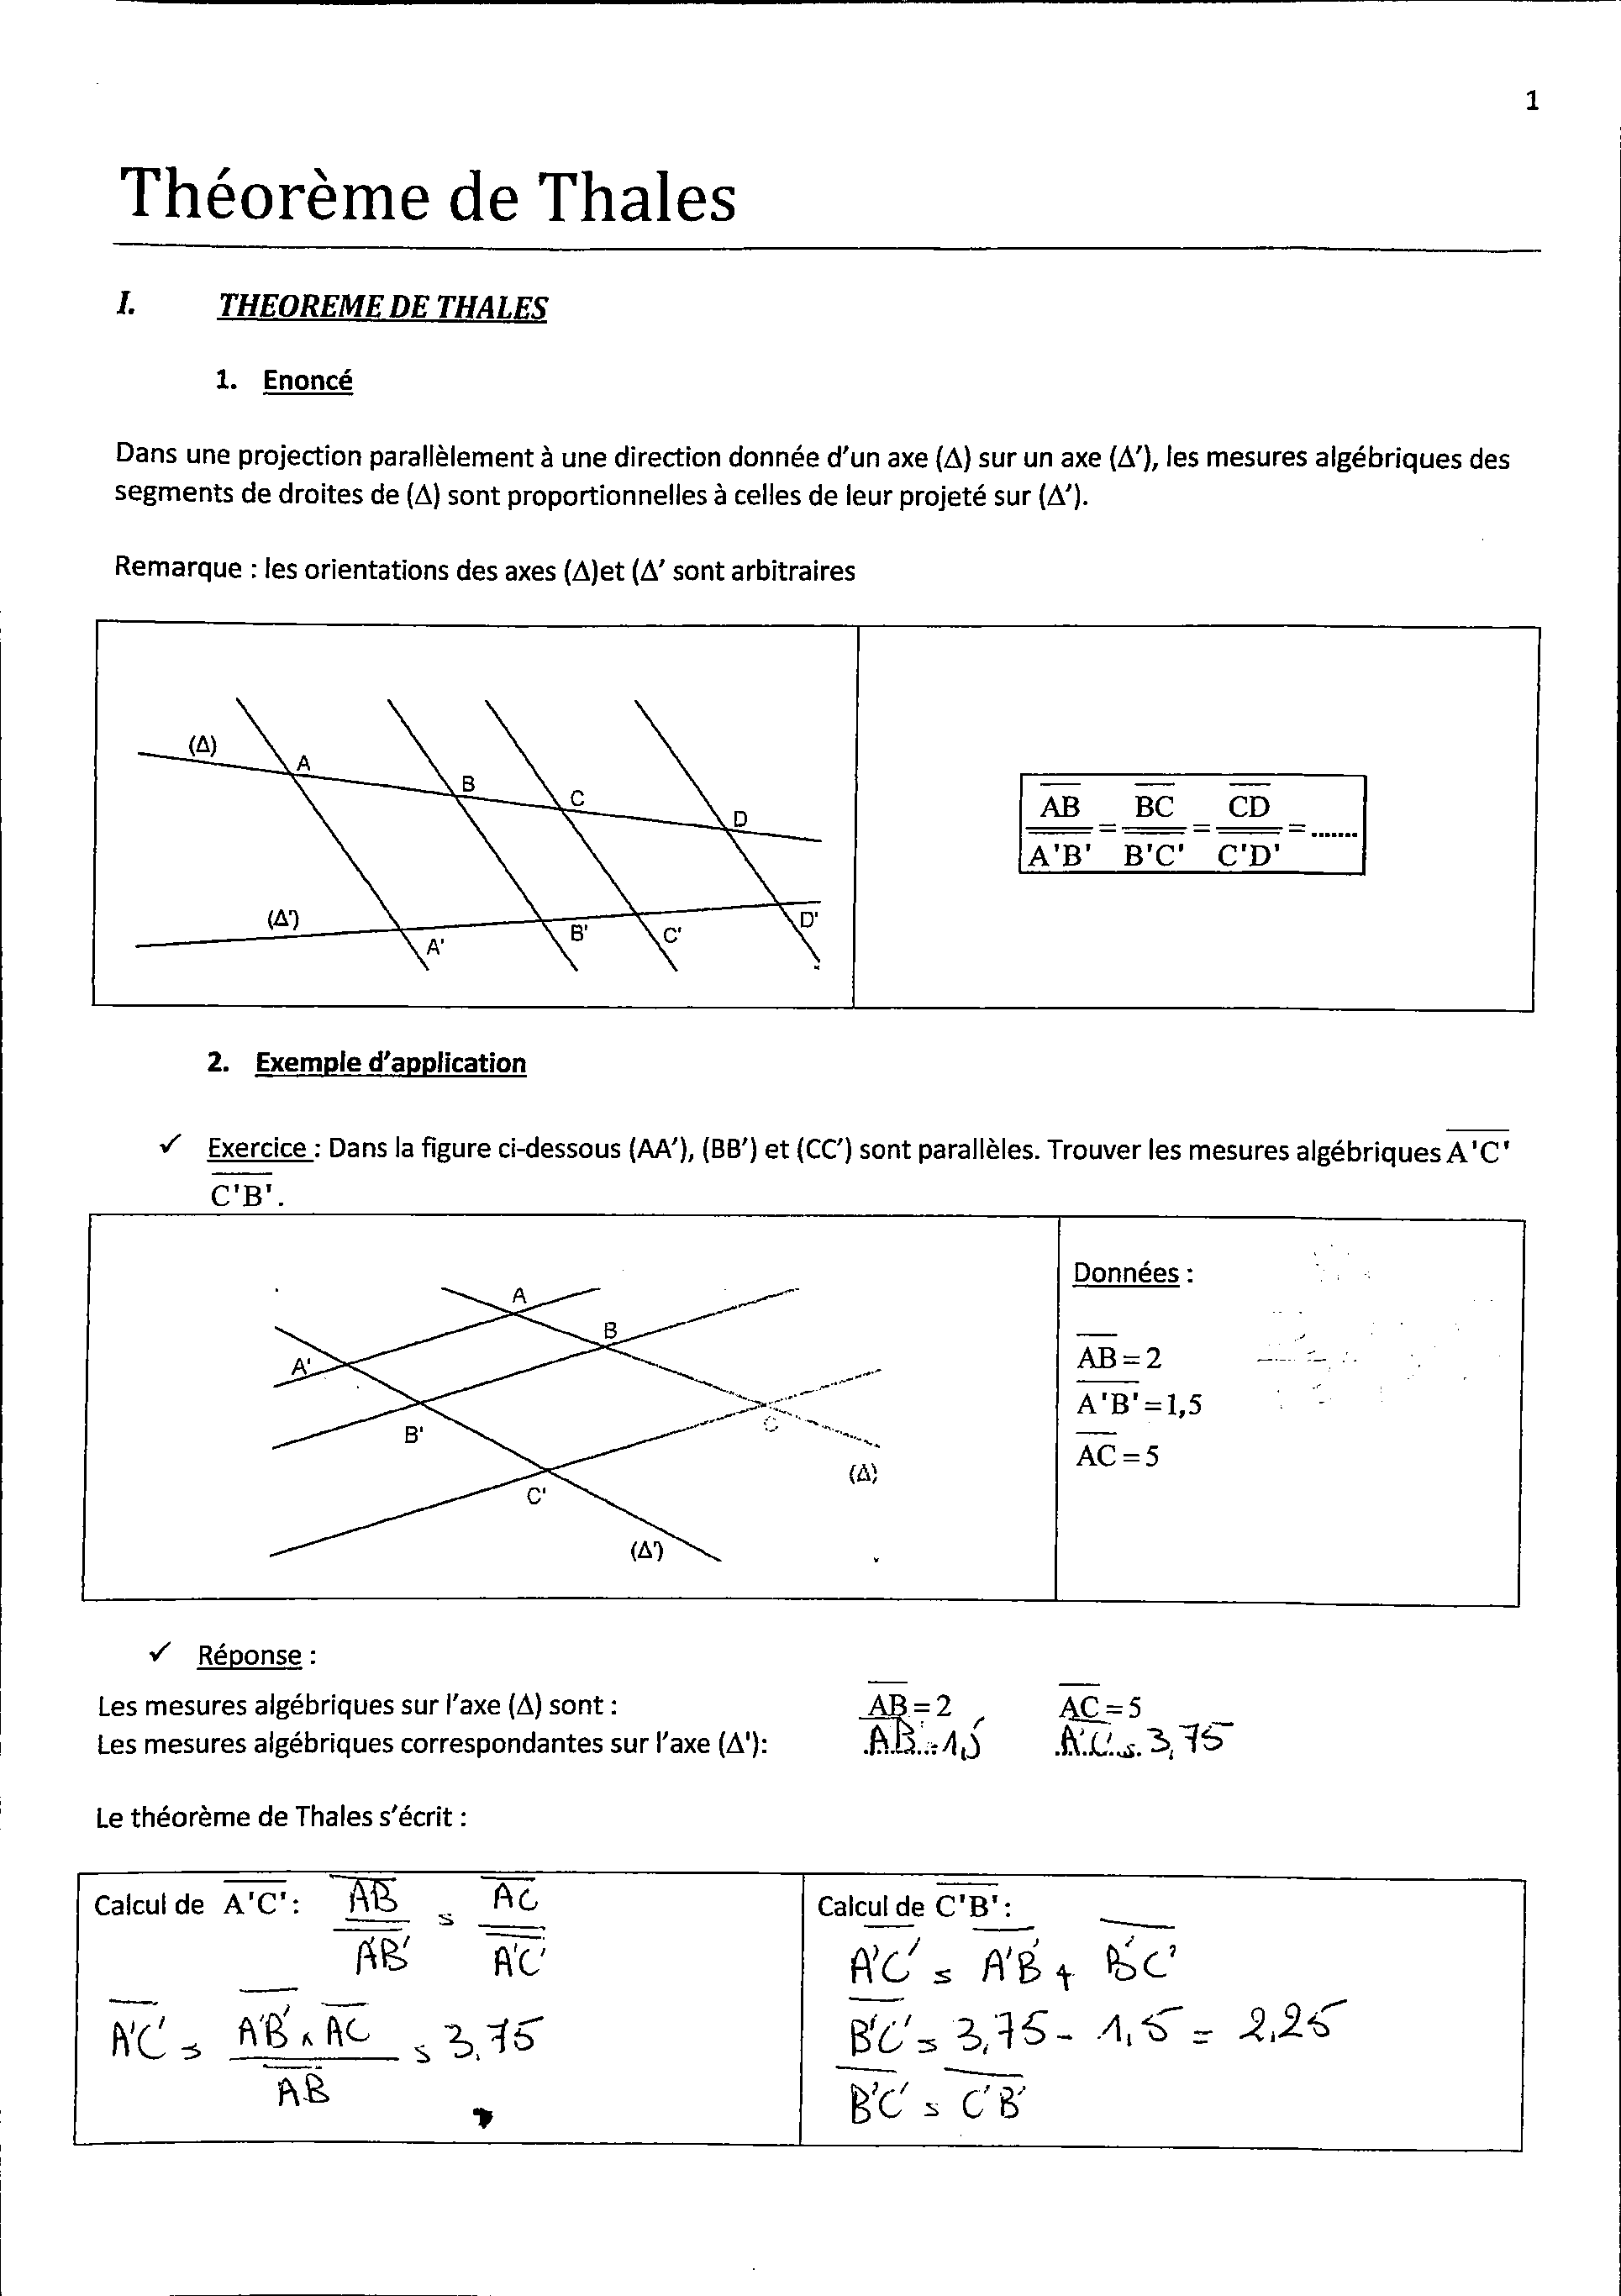 1
Théorème de Thales
I. THEOREME DE THALES
1. Enoncé
Dans une projection parallèlement à une direction donnée d'un axe (Δ) sur un axe (Δ'), les mesures algébriques des
segments de droites de (Δ) sont proportionnelles à celles de leur projeté sur (Δ').
Remarque : les orientations des axes (Δ)et (Δ' sont arbitraires
(Δ) A B C D
(Δ') A' B' C' D'
AB BC CD
= = = .......
A'B' B'C' C'D'
2. Exemple d'application
✓ Exercice : Dans la figure ci-dessous (AA'), (BB') et (CC') sont parallèles. Trouver les mesures algébriques A'C'
C'B'.
A
B
A'
B'
C
(Δ)
C'
(Δ')
Données :
AB = 2
A'B' = 1,5
AC = 5
✓ Réponse :
Les mesures algébriques sur l'axe (Δ) sont : AB = 2 AC = 5
Les mesures algébriques correspondantes sur l'axe (Δ'): A'B' = 1,5 A'C' = 3,75
Le théorème de Thales s'écrit :
Calcul de A'C': AB = AC
A'B' A'C'
A'C' = A'B' × AC = 3,75
AB
Calcul de C'B':
A'C' = A'B' + B'C'
B'C' = 3,75 - 1,5 = 2,25
B'C' = C'B'